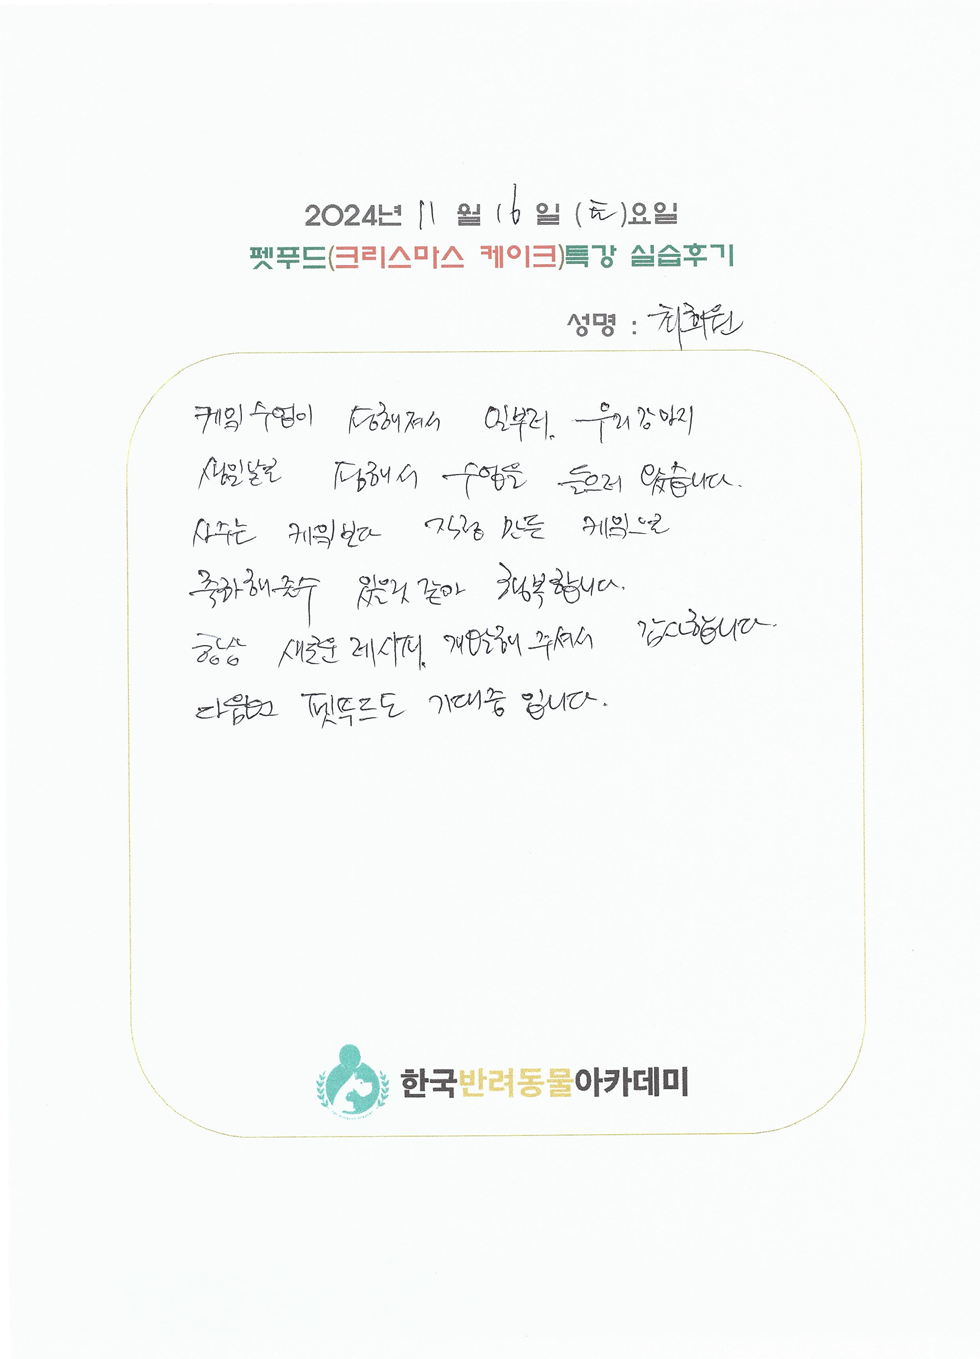 2024년 11 월 16 일 (토)요일
펫푸드(크리스마스 케이크)특강 실습후기
성명 : 최화원
케잌 수업이 정해져서 일부러, 우리강아지
생일날로 정해서 수업을 들으러 왔습니다.
사주는 케잌보다 직접 만든 케잌으로
축하해줄수 있을것 같아 행복합니다.
항상 새로운 레시피, 개발해 주셔서 감사합니다.
다음번 펫푸드도 기대중 입니다.
한국반려동물아카데미